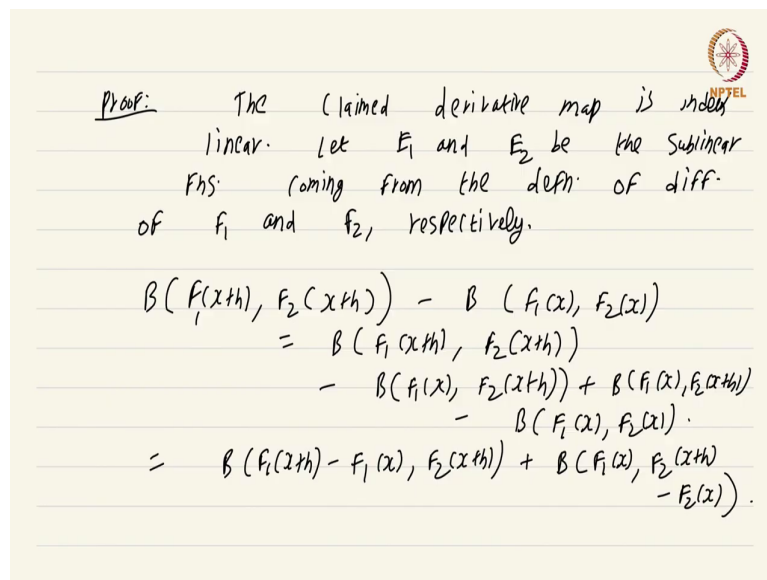 NPTEL
Proof: The claimed derivative map is indeed
linear. Let E₁ and E₂ be the sublinear
Fns. coming from the defn. of diff.
of F₁ and F₂, respectively.
B(F₁(x+h), F₂(x+h)) - B(F₁(x), F₂(x))
= B(F₁(x+h), F₂(x+h))
- B(F₁(x), F₂(x+h)) + B(F₁(x), F₂(x+h))
- B(F₁(x), F₂(x)).
= B(F₁(x+h) - F₁(x), F₂(x+h)) + B(F₁(x), F₂(x+h)
- F₂(x)).